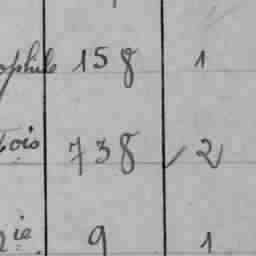 ophile 158 1
tois 738 2
ie 9 1